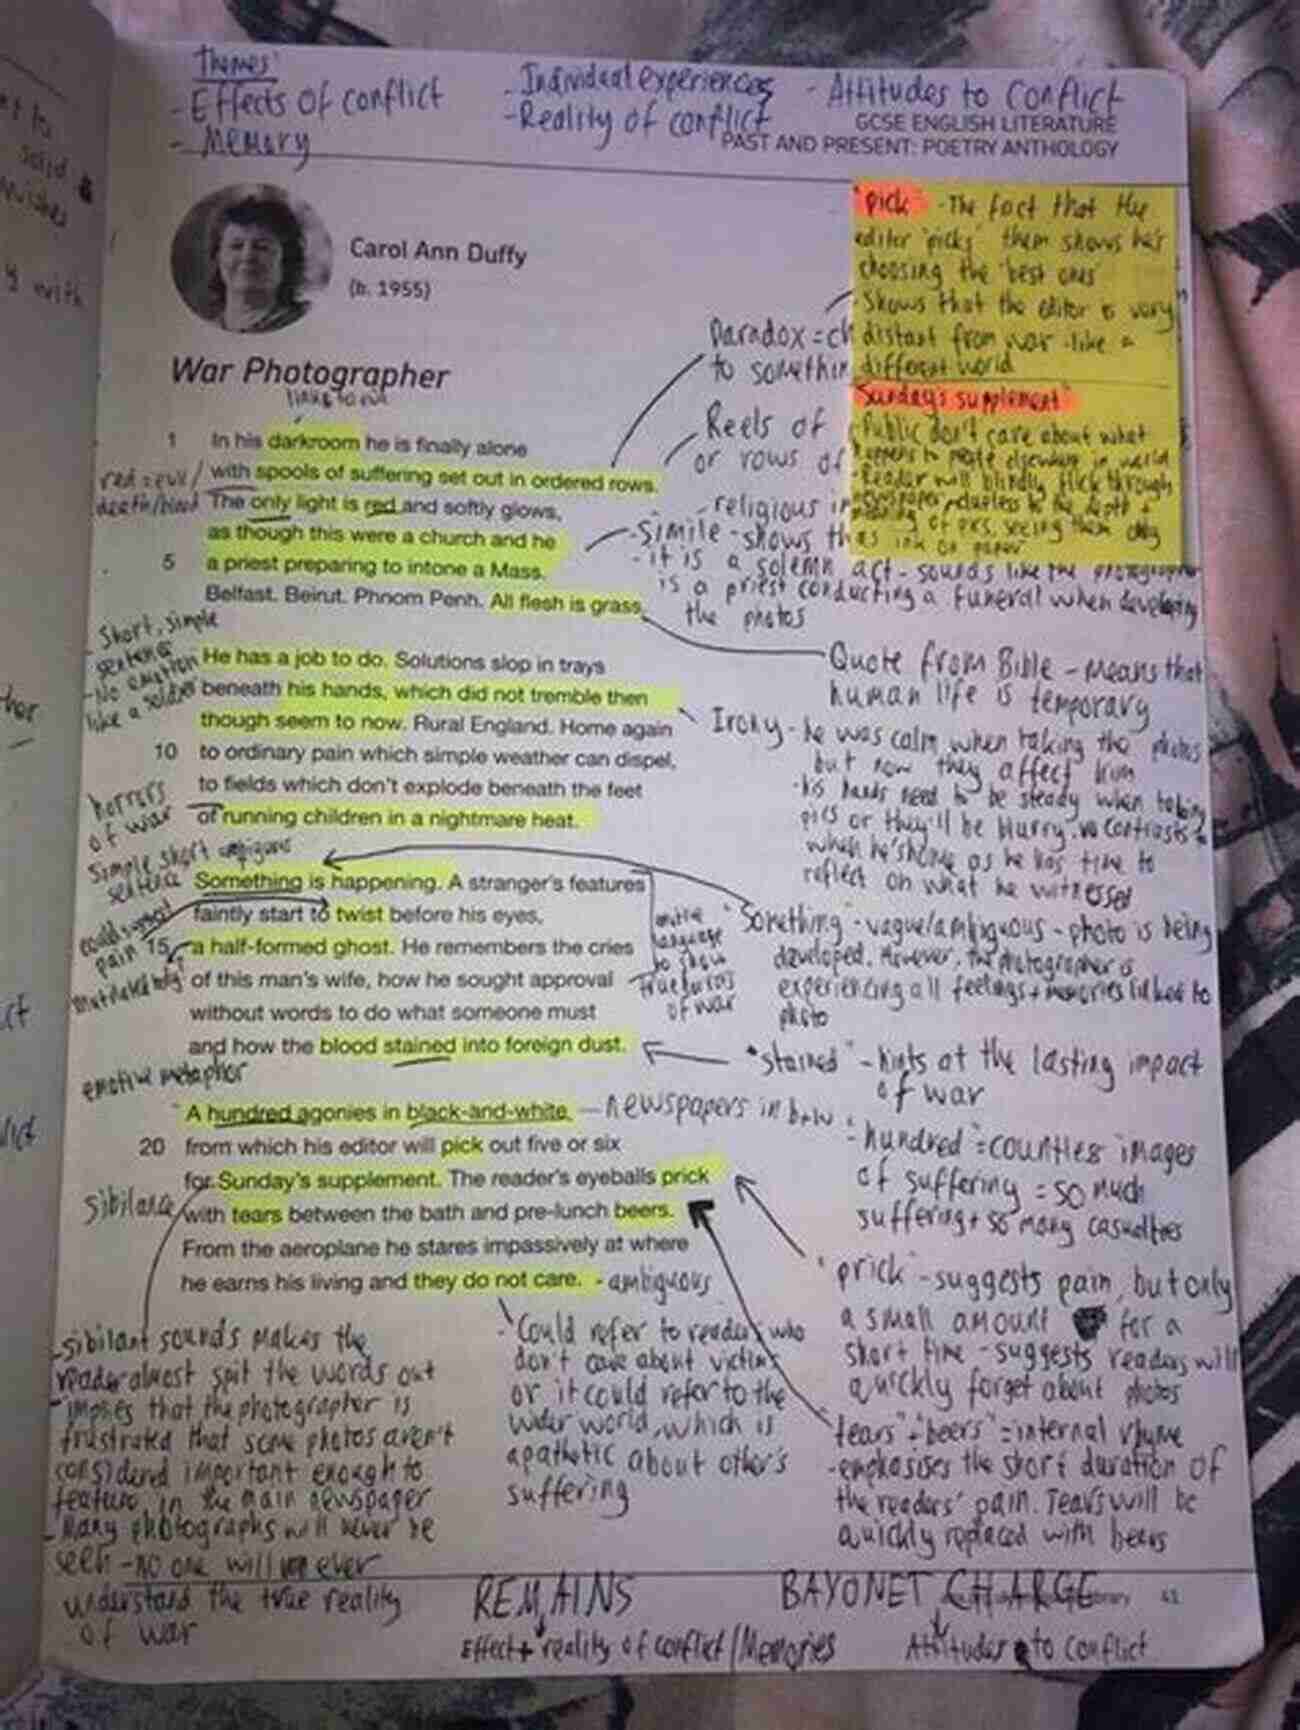 Themes:
- Effects of conflict
- Memory
- Individual experiences
- Reality of conflict
- Attitudes to conflict
GCSE ENGLISH LITERATURE
PAST AND PRESENT: POETRY ANTHOLOGY
Carol Ann Duffy
(b. 1955)
War Photographer
links to evil
1 In his darkroom he is finally alone
with spools of suffering set out in ordered rows.
The only light is red and softly glows,
as though this were a church and he
5 a priest preparing to intone a Mass.
Belfast. Beirut. Phnom Penh. All flesh is grass.
He has a job to do. Solutions slop in trays
beneath his hands, which did not tremble then
though seem to now. Rural England. Home again
10 to ordinary pain which simple weather can dispel,
to fields which don't explode beneath the feet
of running children in a nightmare heat.
Something is happening. A stranger's features
faintly start to twist before his eyes,
15 a half-formed ghost. He remembers the cries
of this man's wife, how he sought approval
without words to do what someone must
and how the blood stained into foreign dust.
A hundred agonies in black-and-white
20 from which his editor will pick out five or six
for Sunday's supplement. The reader's eyeballs prick
with tears between the bath and pre-lunch beers.
From the aeroplane he stares impassively at where
he earns his living and they do not care.
"pick" - The fact that the
editor 'picks' them shows he's
choosing the 'best ones'
- Shows that the editor is very
distant from war - like a
different world
"Sunday's supplement"
- Public don't care about what
happens to people elsewhere in world
- Reader will blindly flick through
newspaper, clueless to the depth +
meaning of pics, seeing them only
as ink on paper
Paradox = ch
to somethin
Reels of
or rows of
- religious
- simile - shows
- it is a solemn act - sounds like the photographer
is a priest conducting a funeral when developing
the photos
Quote from Bible - means that
human life is temporary
Irony - he was calm when taking the photos
but now they affect him
- his hands need to be steady when taking
pics or they'll be blurry. contrasts
when he's home as he has time to
reflect on what he witnessed
"Something" - vague/ambiguous - photo is being
developed. However, the photographer is
experiencing all feelings + memories linked to
photo
emotive
language
to show
true horrors
of war
"stained" - hints at the lasting impact
of war
- newspapers in b+w
"hundred" = countless images
of suffering = so much
suffering + so many casualties
"prick" - suggests pain, but only
a small amount for a
short time - suggests readers will
quickly forget about photos
"tears" + "beers" = internal rhyme
- emphasises the short duration of
the readers' pain. Tears will be
quickly replaced with beers
- ambiguous
- Could refer to readers who
don't care about victims
or it could refer to the
wider world, which is
apathetic about other's
suffering
red = evil/
death/blood
Short, simple
sentence
- No emotion
like a soldier
horrors
of war
Simple, short ambiguous
sentence
could suggest
pain
mutilated body
emotive metaphor
sibilance
- sibilant sounds makes the
reader almost spit the words out
- implies that the photographer is
frustrated that some photos aren't
considered important enough to
feature in the main newspaper
- Many photographs will never be
seen - no one will ever
understand the true reality
of war
REMAINS
Effect + reality of conflict/Memories
BAYONET CHARGE
Attitudes to conflict
41